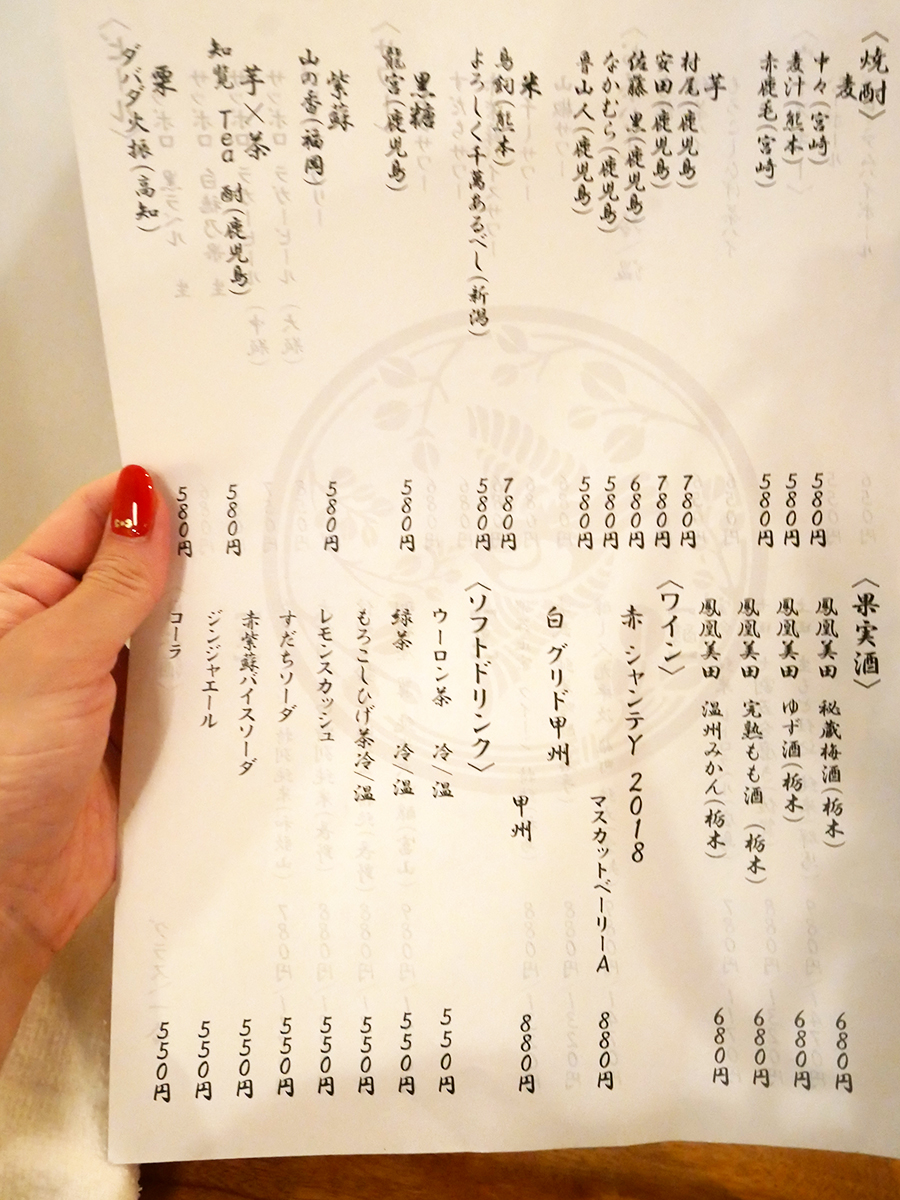 〈焼酎〉
麦
中々(宮崎) 580円
麦汁(熊本) 580円
赤鹿毛(宮崎) 580円
芋
村尾(鹿児島) 780円
安田(鹿児島) 780円
佐藤 黒(鹿児島) 680円
なかむら(鹿児島) 580円
魯山人(鹿児島) 580円
米
鳥飼(熊本) 780円
よろしく千萬あるべし(新潟) 580円
黒糖
龍宮(鹿児島) 580円
紫蘇
山の香(福岡) 580円
芋×茶
知覧 Tea 酎(鹿児島) 580円
栗
ダバダ火振(高知) 580円
〈果実酒〉
鳳凰美田 秘蔵梅酒(栃木) 680円
鳳凰美田 ゆず酒(栃木) 680円
鳳凰美田 完熟もも酒 (栃木) 680円
鳳凰美田 温州みかん(栃木) 680円
〈ワイン〉
赤 シャンテY 2018
マスカットベーリーA 880円
白 グリド甲州
甲州 880円
〈ソフトドリンク〉
ウーロン茶 冷/温 550円
緑茶 冷/温 550円
もろこしひげ茶冷/温 550円
レモンスカッシュ 550円
すだちソーダ 550円
赤紫蘇バイスソーダ 550円
ジンジャエール 550円
コーラ 550円